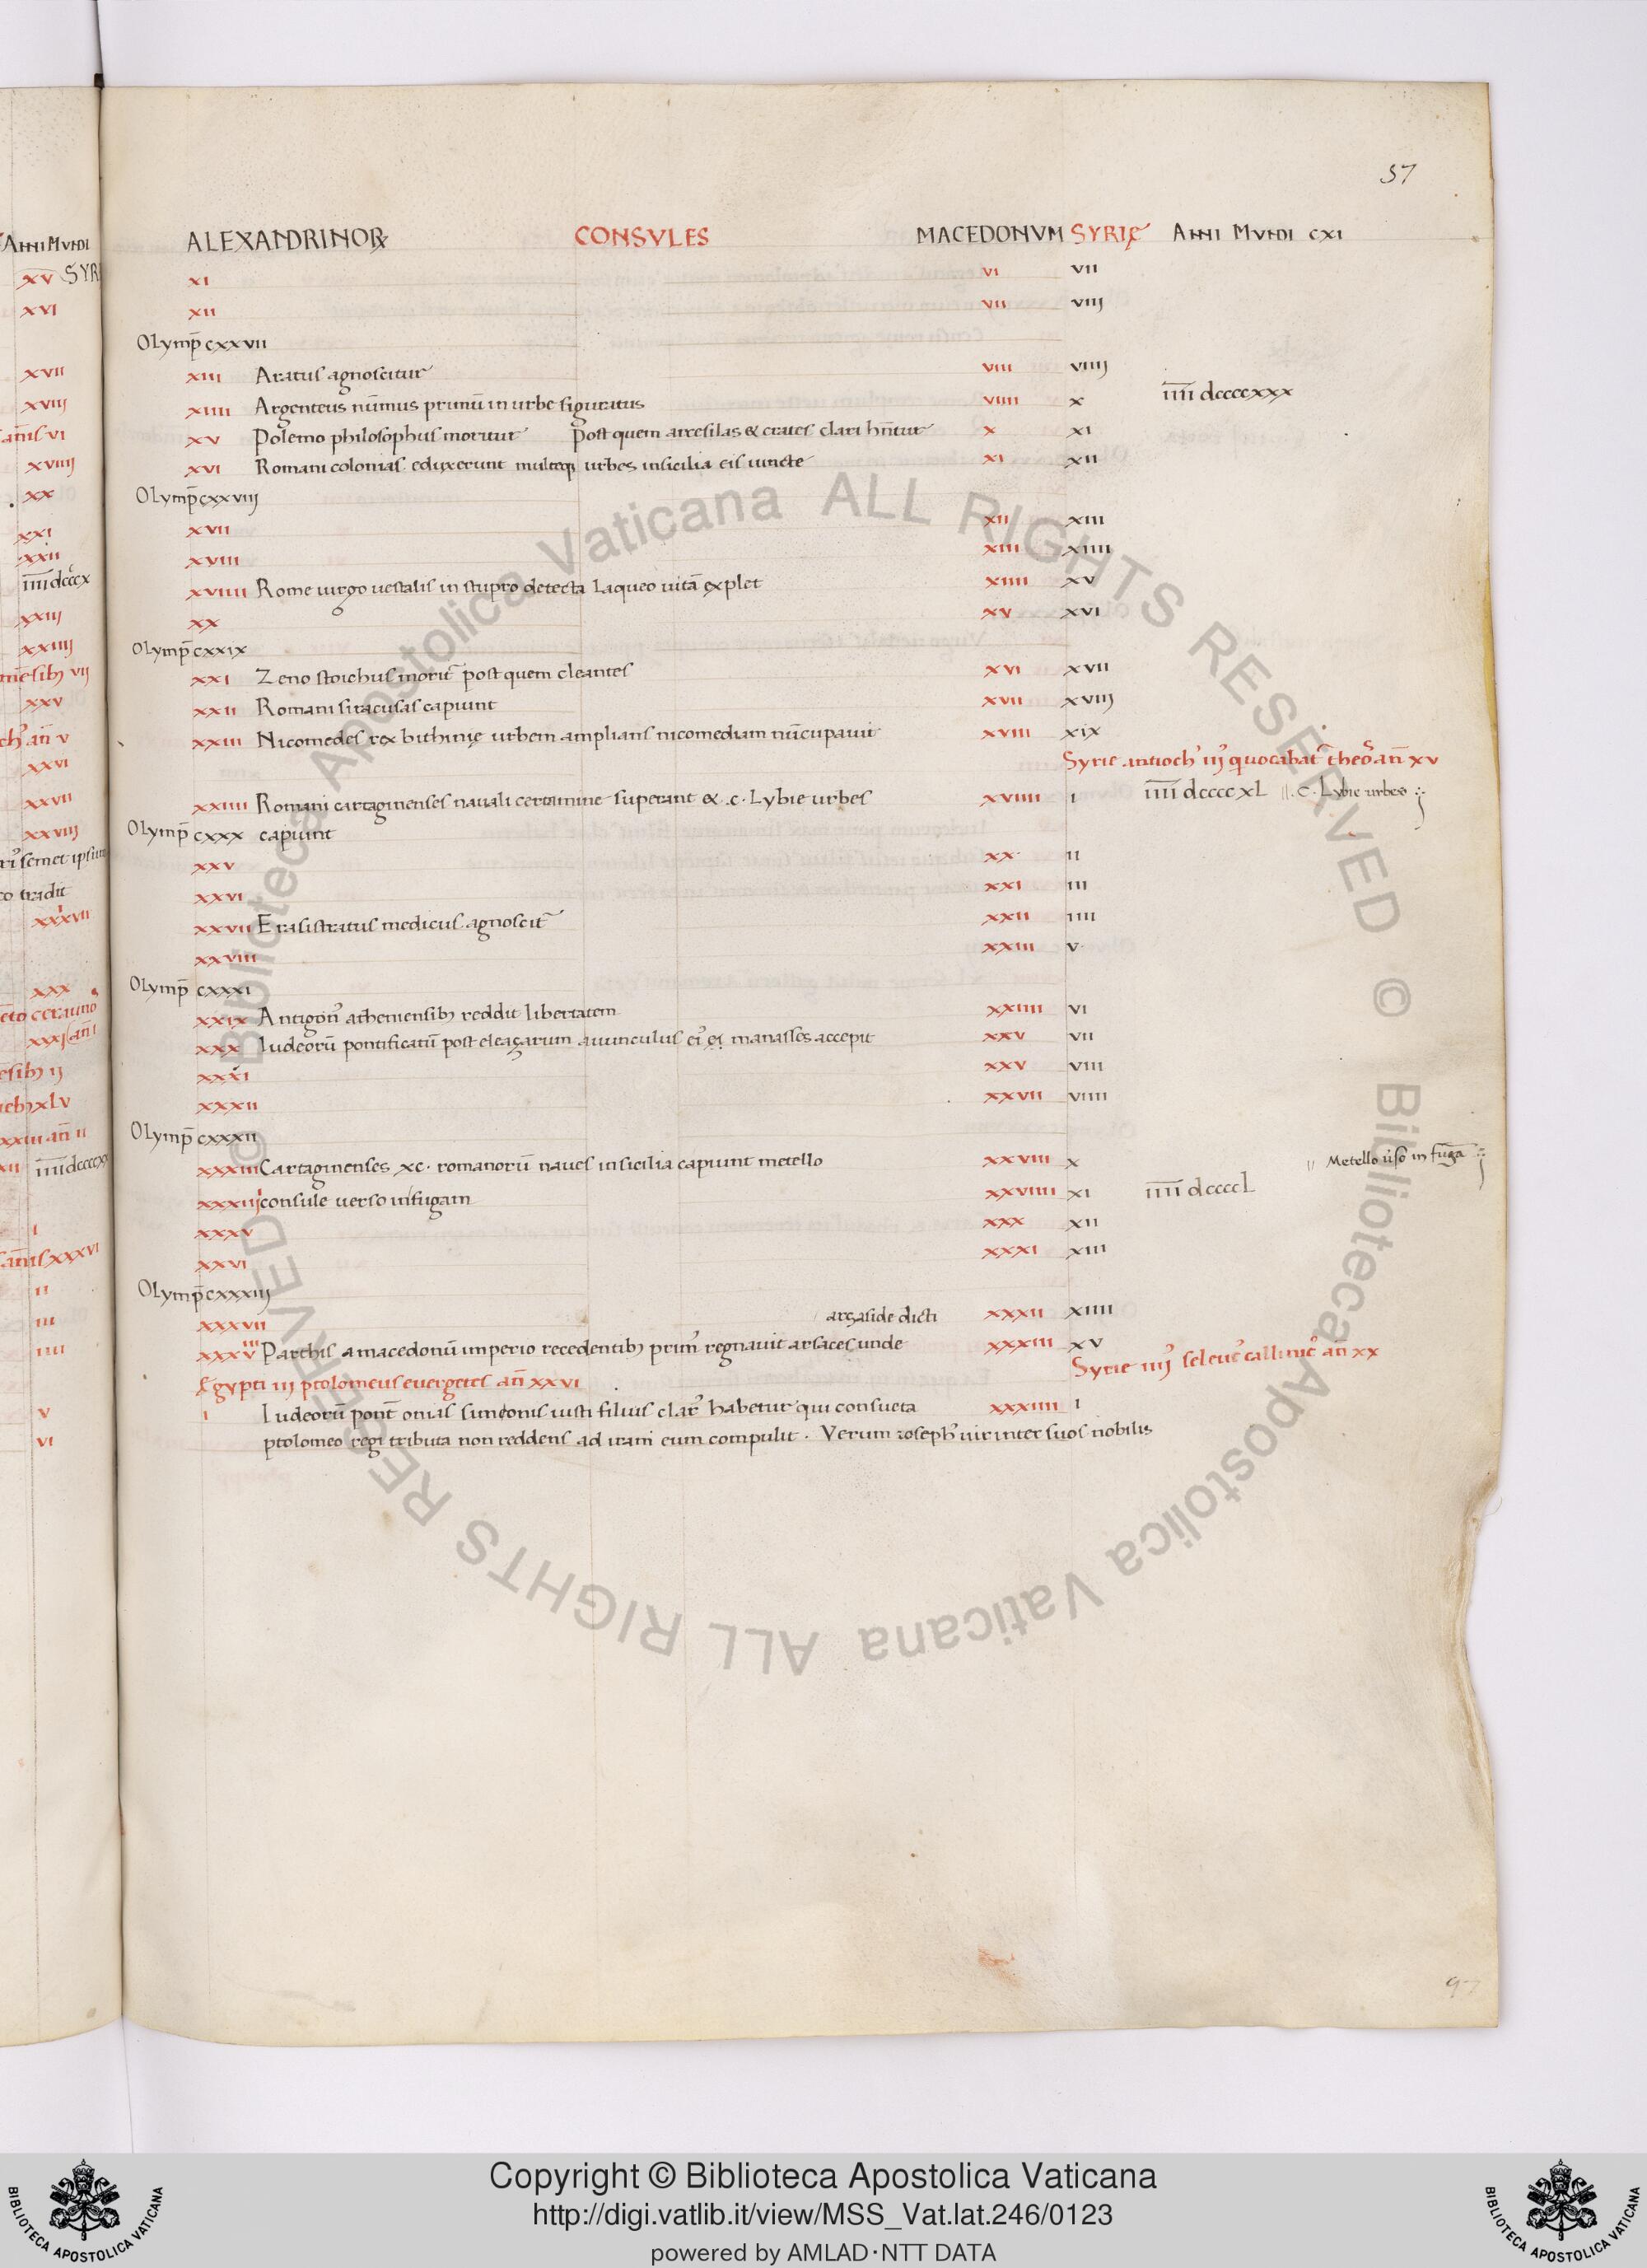 57
ALEXANDRINOꝜ CONSVLES MACEDONVM SYRIĘ ANNI MVNDI CXI
XI VI VII
XII VII VIIJ
Olymp̄ cxxvii
XIII Aratus agnoscitur VIII VIIIJ
XIIII Argenteus nūmus primū in urbe figuratus VIIII X I̅I̅I̅I̅ dccccxxx
XV Polemo philosophus moritur Post quem arcesilas & crates clari hn̄tur X XI
XVI Romani colonias eduxerunt multeq; urbes insicilia eis iuncte XI XII
Olymp̄ cxxviij
XVII XII XIII
XVIII XIII XIIII
XVIIII Rome uirgo uestalis in stupro detecta Laqueo uitā explet XIIII XV
XX XV XVI
Olymp̄ cxxix
XXI Zeno stoichus morit̄ post quem cleantes XVI XVII
XXII Romani siracusas capiunt XVII XVIIJ
XXIII Nicomedes rex bithinię urbem amplians nicomediam nūcupauit XVIII XIX
Syrie antioch᾽ iij᾽ q̇uocabat̄ theos̉ an̄ xv
XXIIII Romani cartaginenses nauali certamine superant & .c. Lybie urbes XVIIII I I̅I̅I̅I̅ dccccxL .C. Lybie urbes
Olymp̄ cxxx capiunt
XXV XX II
XXVI XXI III
XXVII Erasistratus medicus agnoscit̄ XXII IIII
XXVIII XXIII V
Olymp̄ cxxxi
XXIX Antigon᾽ atheniensib; reddit libertatem XXIIII VI
XXX Iudeorū pontificatū post eleaçarum auunculus ei᾽ ei manasses accepit XXV VII
XXXI XXV VIII
XXXII XXVII VIIII
Olymp̄ cxxxii
XXXIII Cartaginenses xc. romanorū naues insicilia capiunt metello XXVIII X Metello u̇so in fugā
XXXIIIJ consule verso infugam XXVIIII XI I̅I̅I̅I̅ dccccL
XXXV XXX XII
XXVI XXXI XIII
Olymp̄ cxxxiij
XXXVII arsaside dicti XXXII XIIII
XXXVIII Parthis amacedonū imperio recedentib; prim᾽ regnauit arsaces unde XXXIII XV
Syrie iiij᾽ seleuc᾽ callinic᾽ an̄ xx
Ęgypti iij ptolomeus euergetes an̄ xxvi
I Iudeorū pont̄ onias simeonis iusti filius clar᾽ habetur qui consueta XXXIIII I
ptolomeo regi tributa non reddens ad iram eum compulit. Verum ioseph᾽ uir inter suos nobilis
97
Copyright © Biblioteca Apostolica Vaticana
http://digi.vatlib.it/view/MSS_Vat.lat.246/0123
powered by AMLAD·NTT DATA
BIBLIOTECA APOSTOLICA VATICANA
BIBLIOTECA APOSTOLICA VATICANA
© Biblioteca Apostolica Vaticana ALL RIGHTS RESERVED © Biblioteca Apostolica Vaticana ALL RIGHTS RESERVED